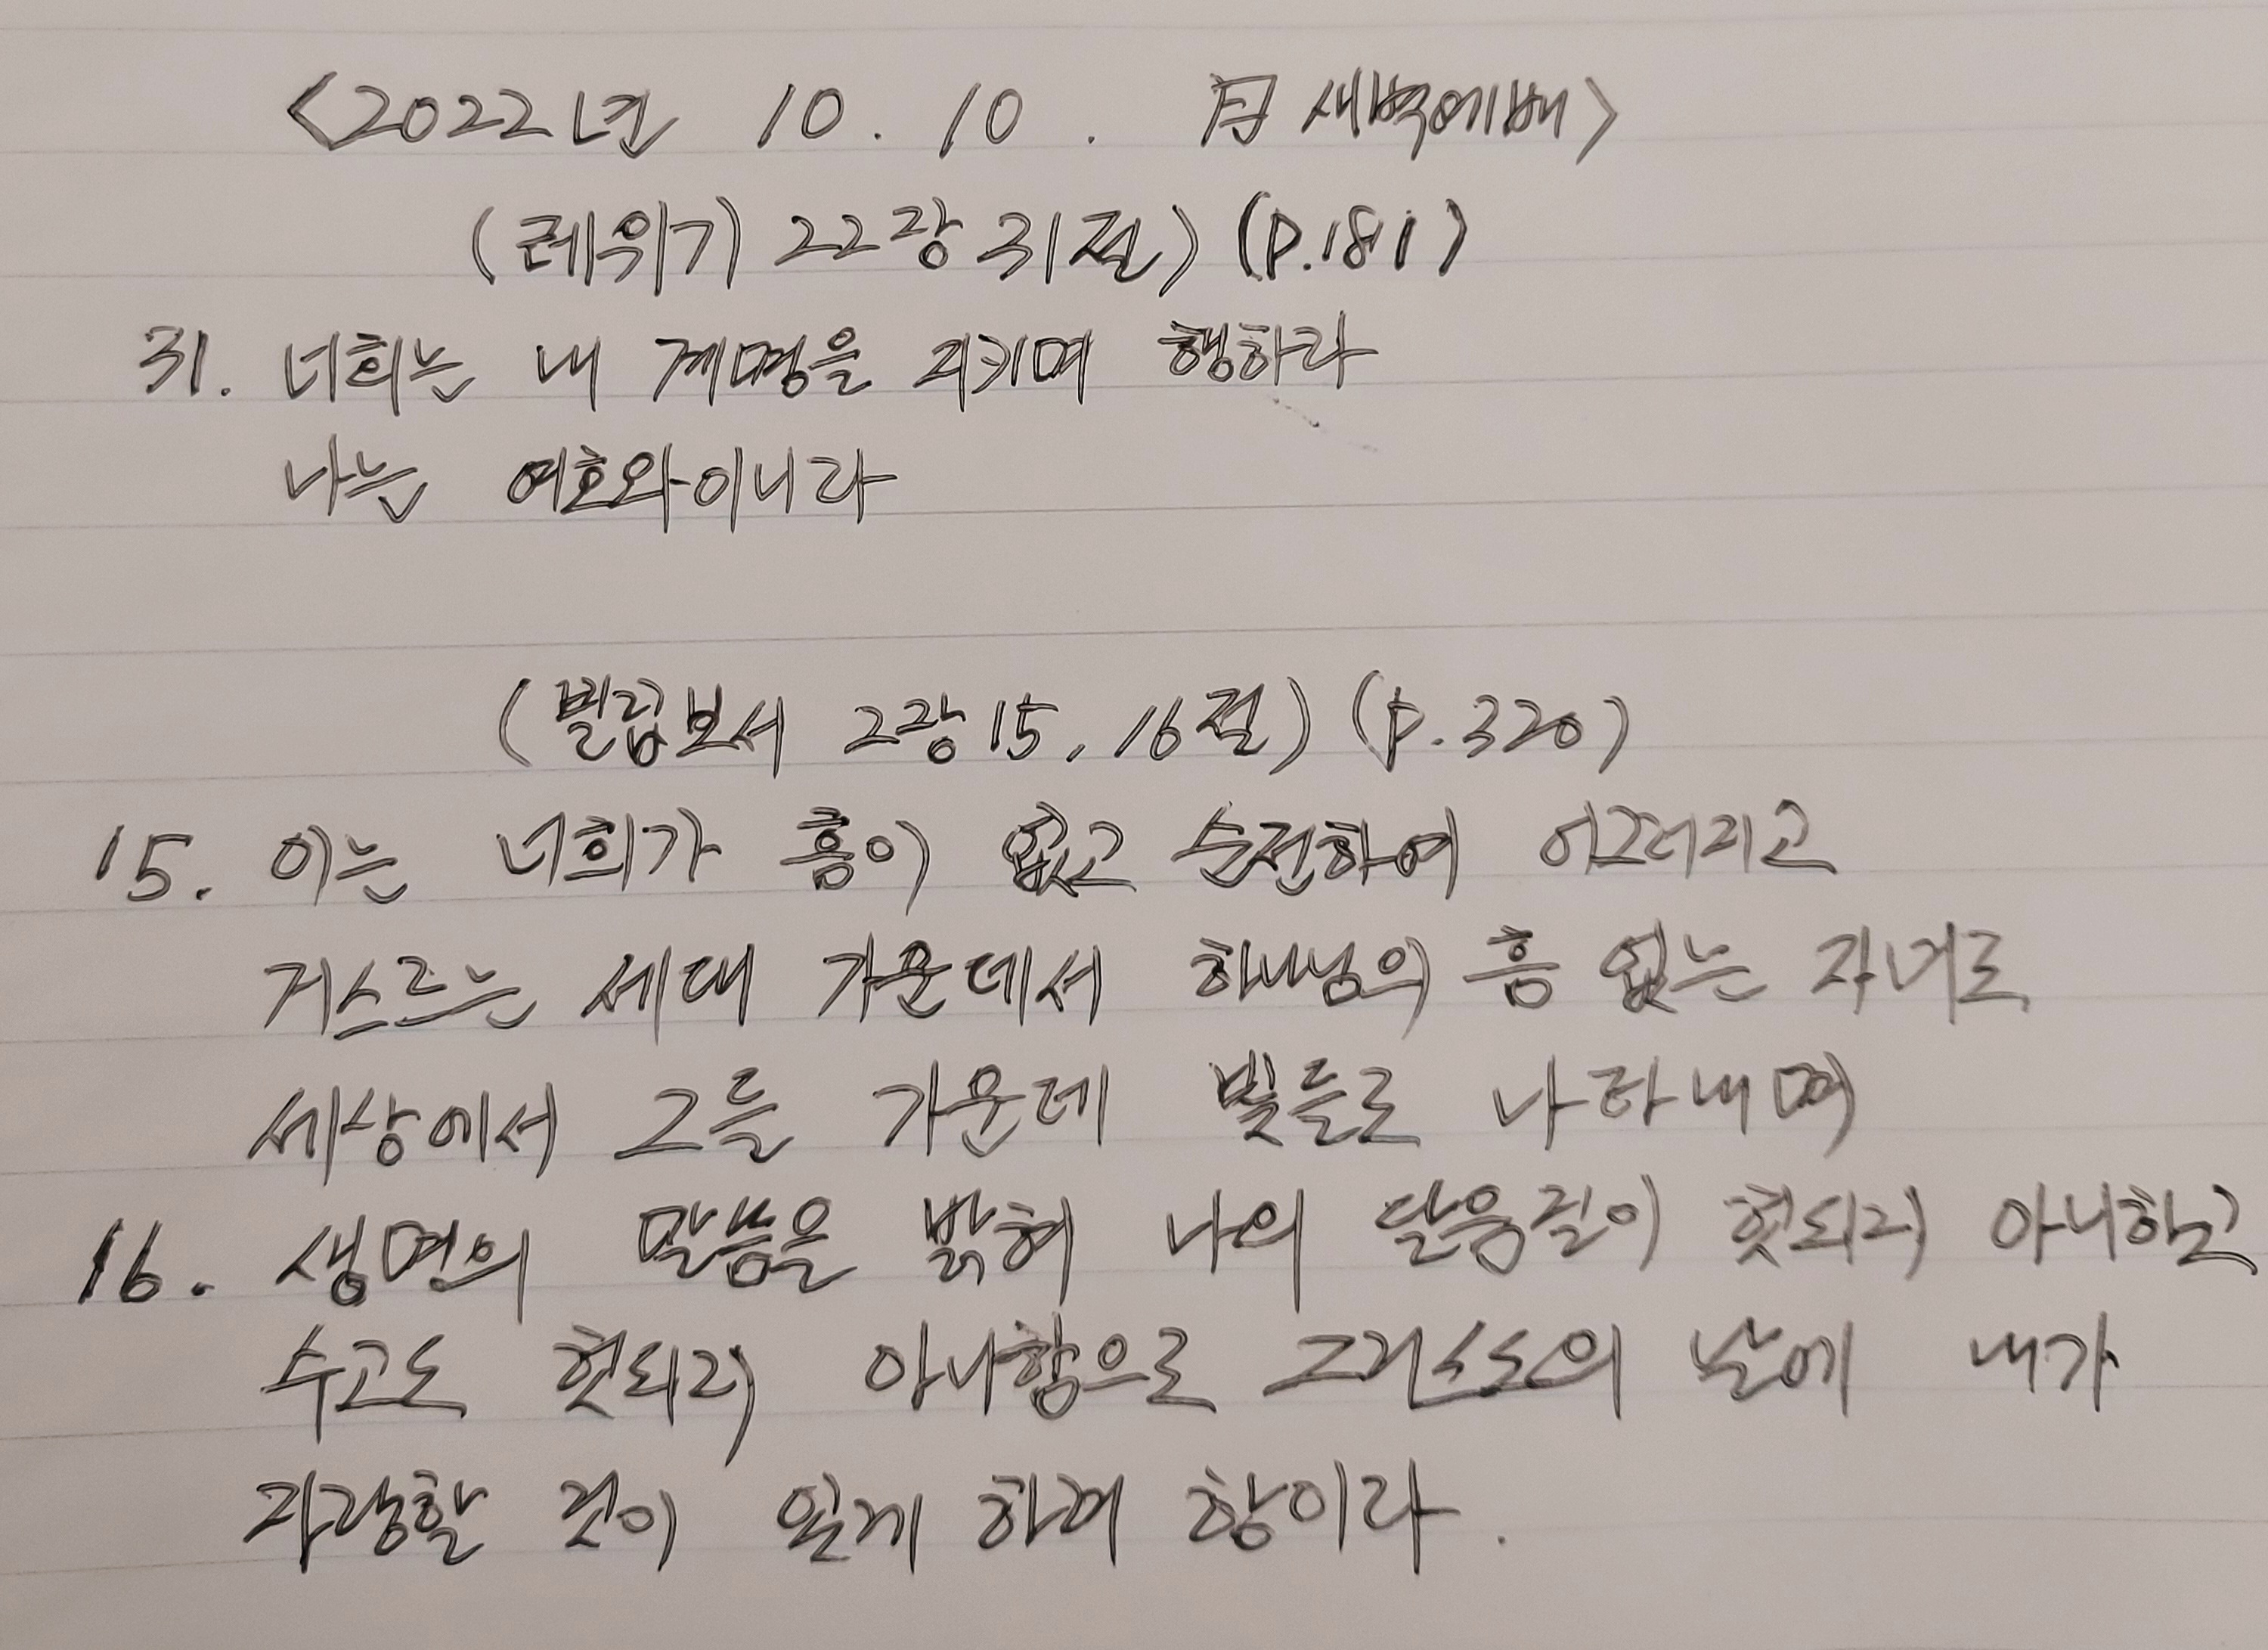 <2022년 10. 10. 月 새벽예배>
(레위기 22장 31절) (P.181)
31. 너희는 내 계명을 지키며 행하라
나는 여호와이니라
(빌립보서 2장 15, 16절) (P.320)
15. 이는 너희가 흠이 없고 순전하여 어그러지고
거스르는 세대 가운데서 하나님의 흠 없는 자녀로
세상에서 그들 가운데 빛들로 나타내며
16. 생명의 말씀을 밝혀 나의 달음질이 헛되지 아니하고
수고도 헛되지 아니함으로 그리스도의 날에 내가
자랑할 것이 있게 하려 함이라.